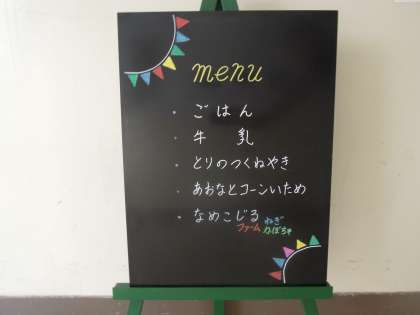 menu
・ごはん
・牛乳
・とりのつくねやき
・あおなとコーンいため
・なめこじる
ファーム ねぎ
かぼちゃ